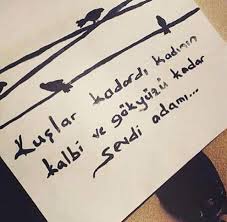 Kuşlar kadardı kadının
kalbi ve gökyüzü kadar
sevdi adamı...